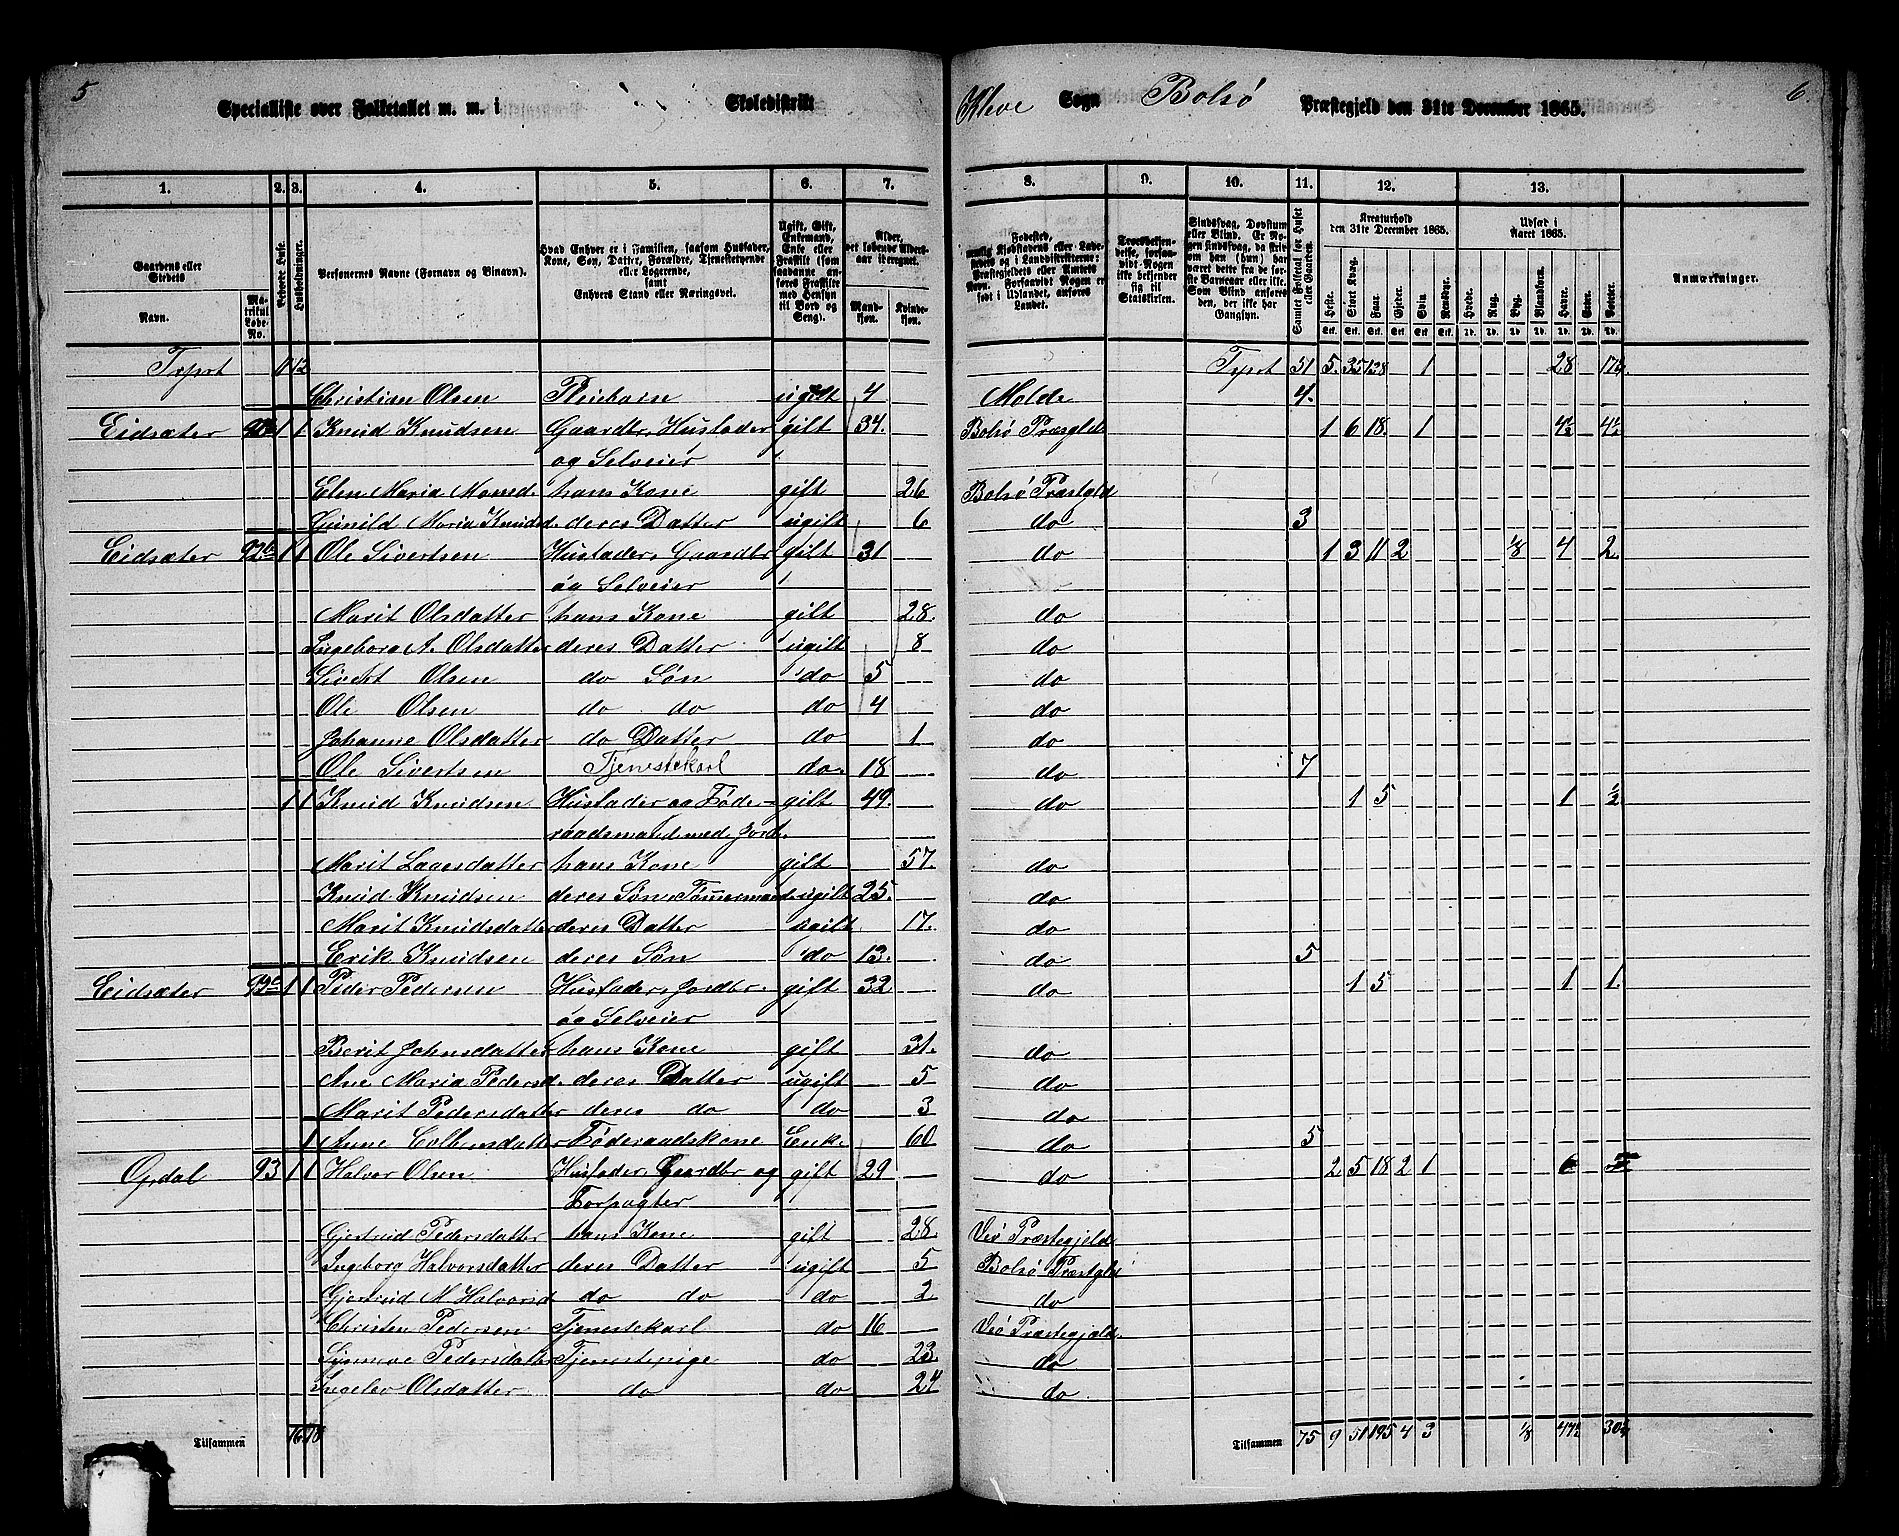 5
Specialliste over Folketallet m. m. i Skoledistrikt
Kleve Sogn Bolsø Præstegjeld den 31te December 1865. 6.
1. 2. 3. 4. 5. 6. 7. 8. 9. 10. 11. 12. 13.
Gaardens eller Stedets
Navn. Matrikul Løbe-No.
Beboede Huse.
Husholdninger.
Personernes Navne (Fornavn og Binavn).
Hvad Enhver er i Familien, saasom Husfader, Kone, Søn, Datter, Forældre, Tjenestetyende eller Logerende, samt Enhvers Stand eller Næringsvei.
Ugift, Gift, Enkemand, Enke eller Fraskilt (som saadanne anføres Fraskilte med Hensyn til Bord og Seng).
Alder, det løbende Alders-aar iberegnet.
Mandkjøn. Kvindekjøn.
Samlet Folketal for Huset eller Gaarden.
Kreaturhold den 31te December 1865.
Udsæd i Aaret 1865.
Anmærkninger.
Heste. Stort Kvæg. Faar. Gjeder. Svin. Rensdyr. Hvede. Rug. Byg. Blandkorn. Havre. Erter. Poteter.
Christian Olsen Pleiebarn ugift 4 Molde 4.
Eidsæter 1 1 Knud Knudsen Gaardbr. Husfader gift 34. Bolsø Præsgld 1 6 18. 1 4½ 4½
og Selveier
Elen Maria Monsd. hans Kone gift 26 Bolsø Præstgld
Gunild Maria Knudsd. deres Datter ugift 6 do 3
Eidsæter 92b 1 1 Ole Sivertsen Husfader, Gaardbr gift 31 do 1 3 11 2 ⅛ 4 2.
og Selveier
Marit Olsdatter hans Kone gift 28. do
Ingeborg A. Olsdatter deres Datter ugift 8 do
Sivert Olsen do Søn do 5 do
Ole Olsen do do do 4 do
Johanne Olsdatter do Datter do 1 do
Ole Sivertsen Tjenestekarl do. 18 do 7
1 1 Knud Knudsen Husfader og Føde- gift 49. do 1 5 1 ½
raadsmand med Jord.
Marit Lagesdatter hans Kone gift 57. do
Knud Knudsen deres Søn, Tømmermand ugift 25. do
Marit Knudsdatter deres Datter ugift 17. do
Erik Knudsen deres Søn do 13. do 5
Eidsæter 92c 1 1 Peder Pedersen Husfader, Jordbr. gift 32 do 1 5 1 1.
og Selveier
Berit Johnsdatter hans Kone gift 31. do
Ane Maria Pedersd. deres Datter ugift 5 do
Marit Pedersdatter deres do do 3 do
1 Anne Føderaadskone Enk. 60 do 5
Opdal 93 1 1 Halvor Olsen Husfader, Gaardbr og gift 29 do 2 5 18 2 1 6
Forpagter
Gjertrud Pedersdatter hans Kone gift 28. Veø Præstegjeld
Ingeborg Halvorsdatter deres Datter ugift 5 Bolsø Præstgld
Gjertrud M Halvorsd do do do 2 do
Christen Pedersen Tjenestekarl do 16 Veø Præstegjeld.
Synneve Pedersdatter Tjenestepige do 23. do
Ingelev Olsdatter do do 24 do
Tilsammen
Tilsammen 75 9 51 195 4 3 ⅛ 47½